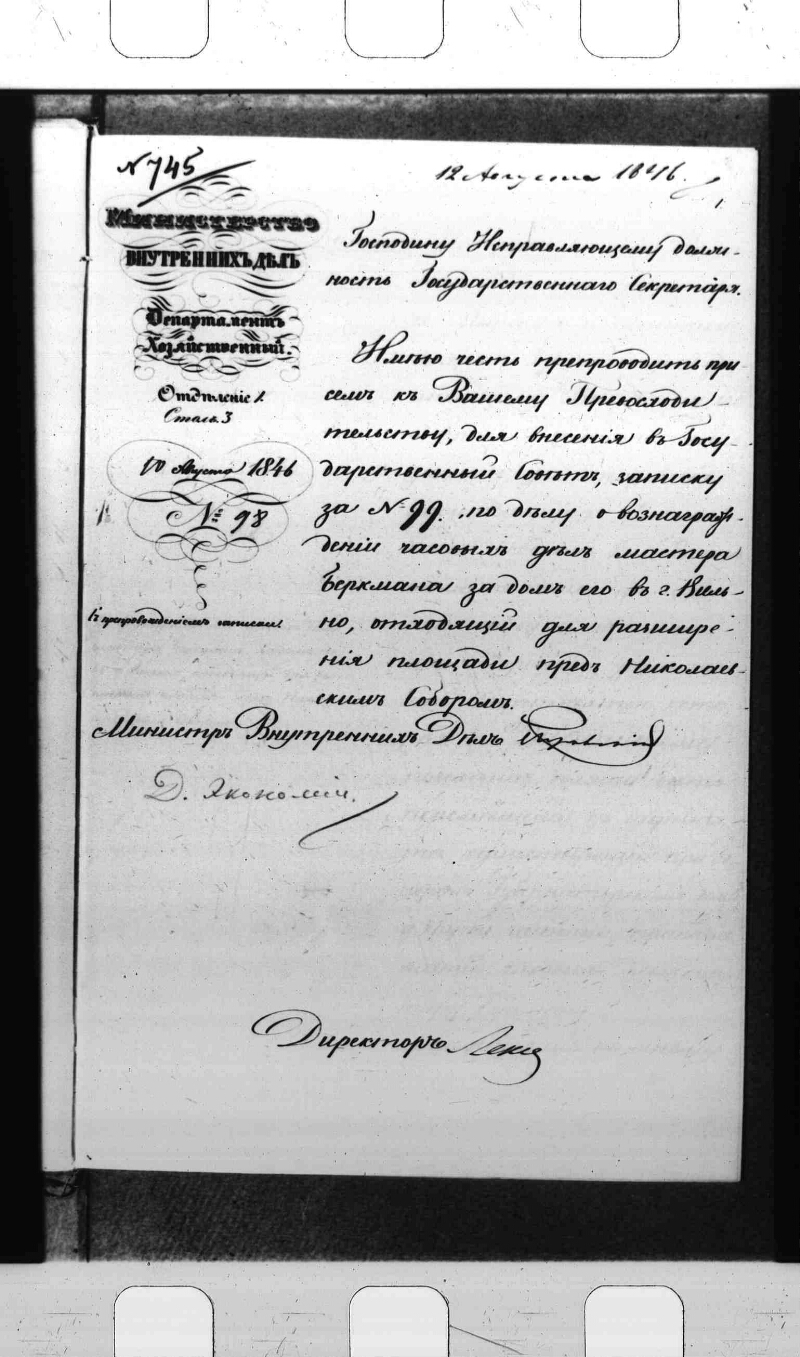 N 745
12 Августа 1846.
1
Министерство
ВНУТРЕННИХЪ ДѢЛЪ
Департаментъ
Хозяйственный.
Отдѣленіе 1.
Столъ 3
10 Августа 1846
№ 98
Съ препровожденіемъ записки
Господину Исправляющему долж-
ность Государственнаго Секретаря.
Имѣю честь препроводить при
семъ къ Вашему Превосходи-
тельству, для внесенія въ Госу-
дарственный Совѣтъ, записку
за № 99. по дѣлу о вознаграж-
деніи часовыхъ дѣлъ мастера
Беркмана за домъ его въ г. Виль-
но, отходящій для расшире-
нія площади предъ Николаев-
скимъ Соборомъ.
Министръ Внутреннихъ Дѣлъ Перовскій
Д. Экономіи.
Директоръ Лексъ